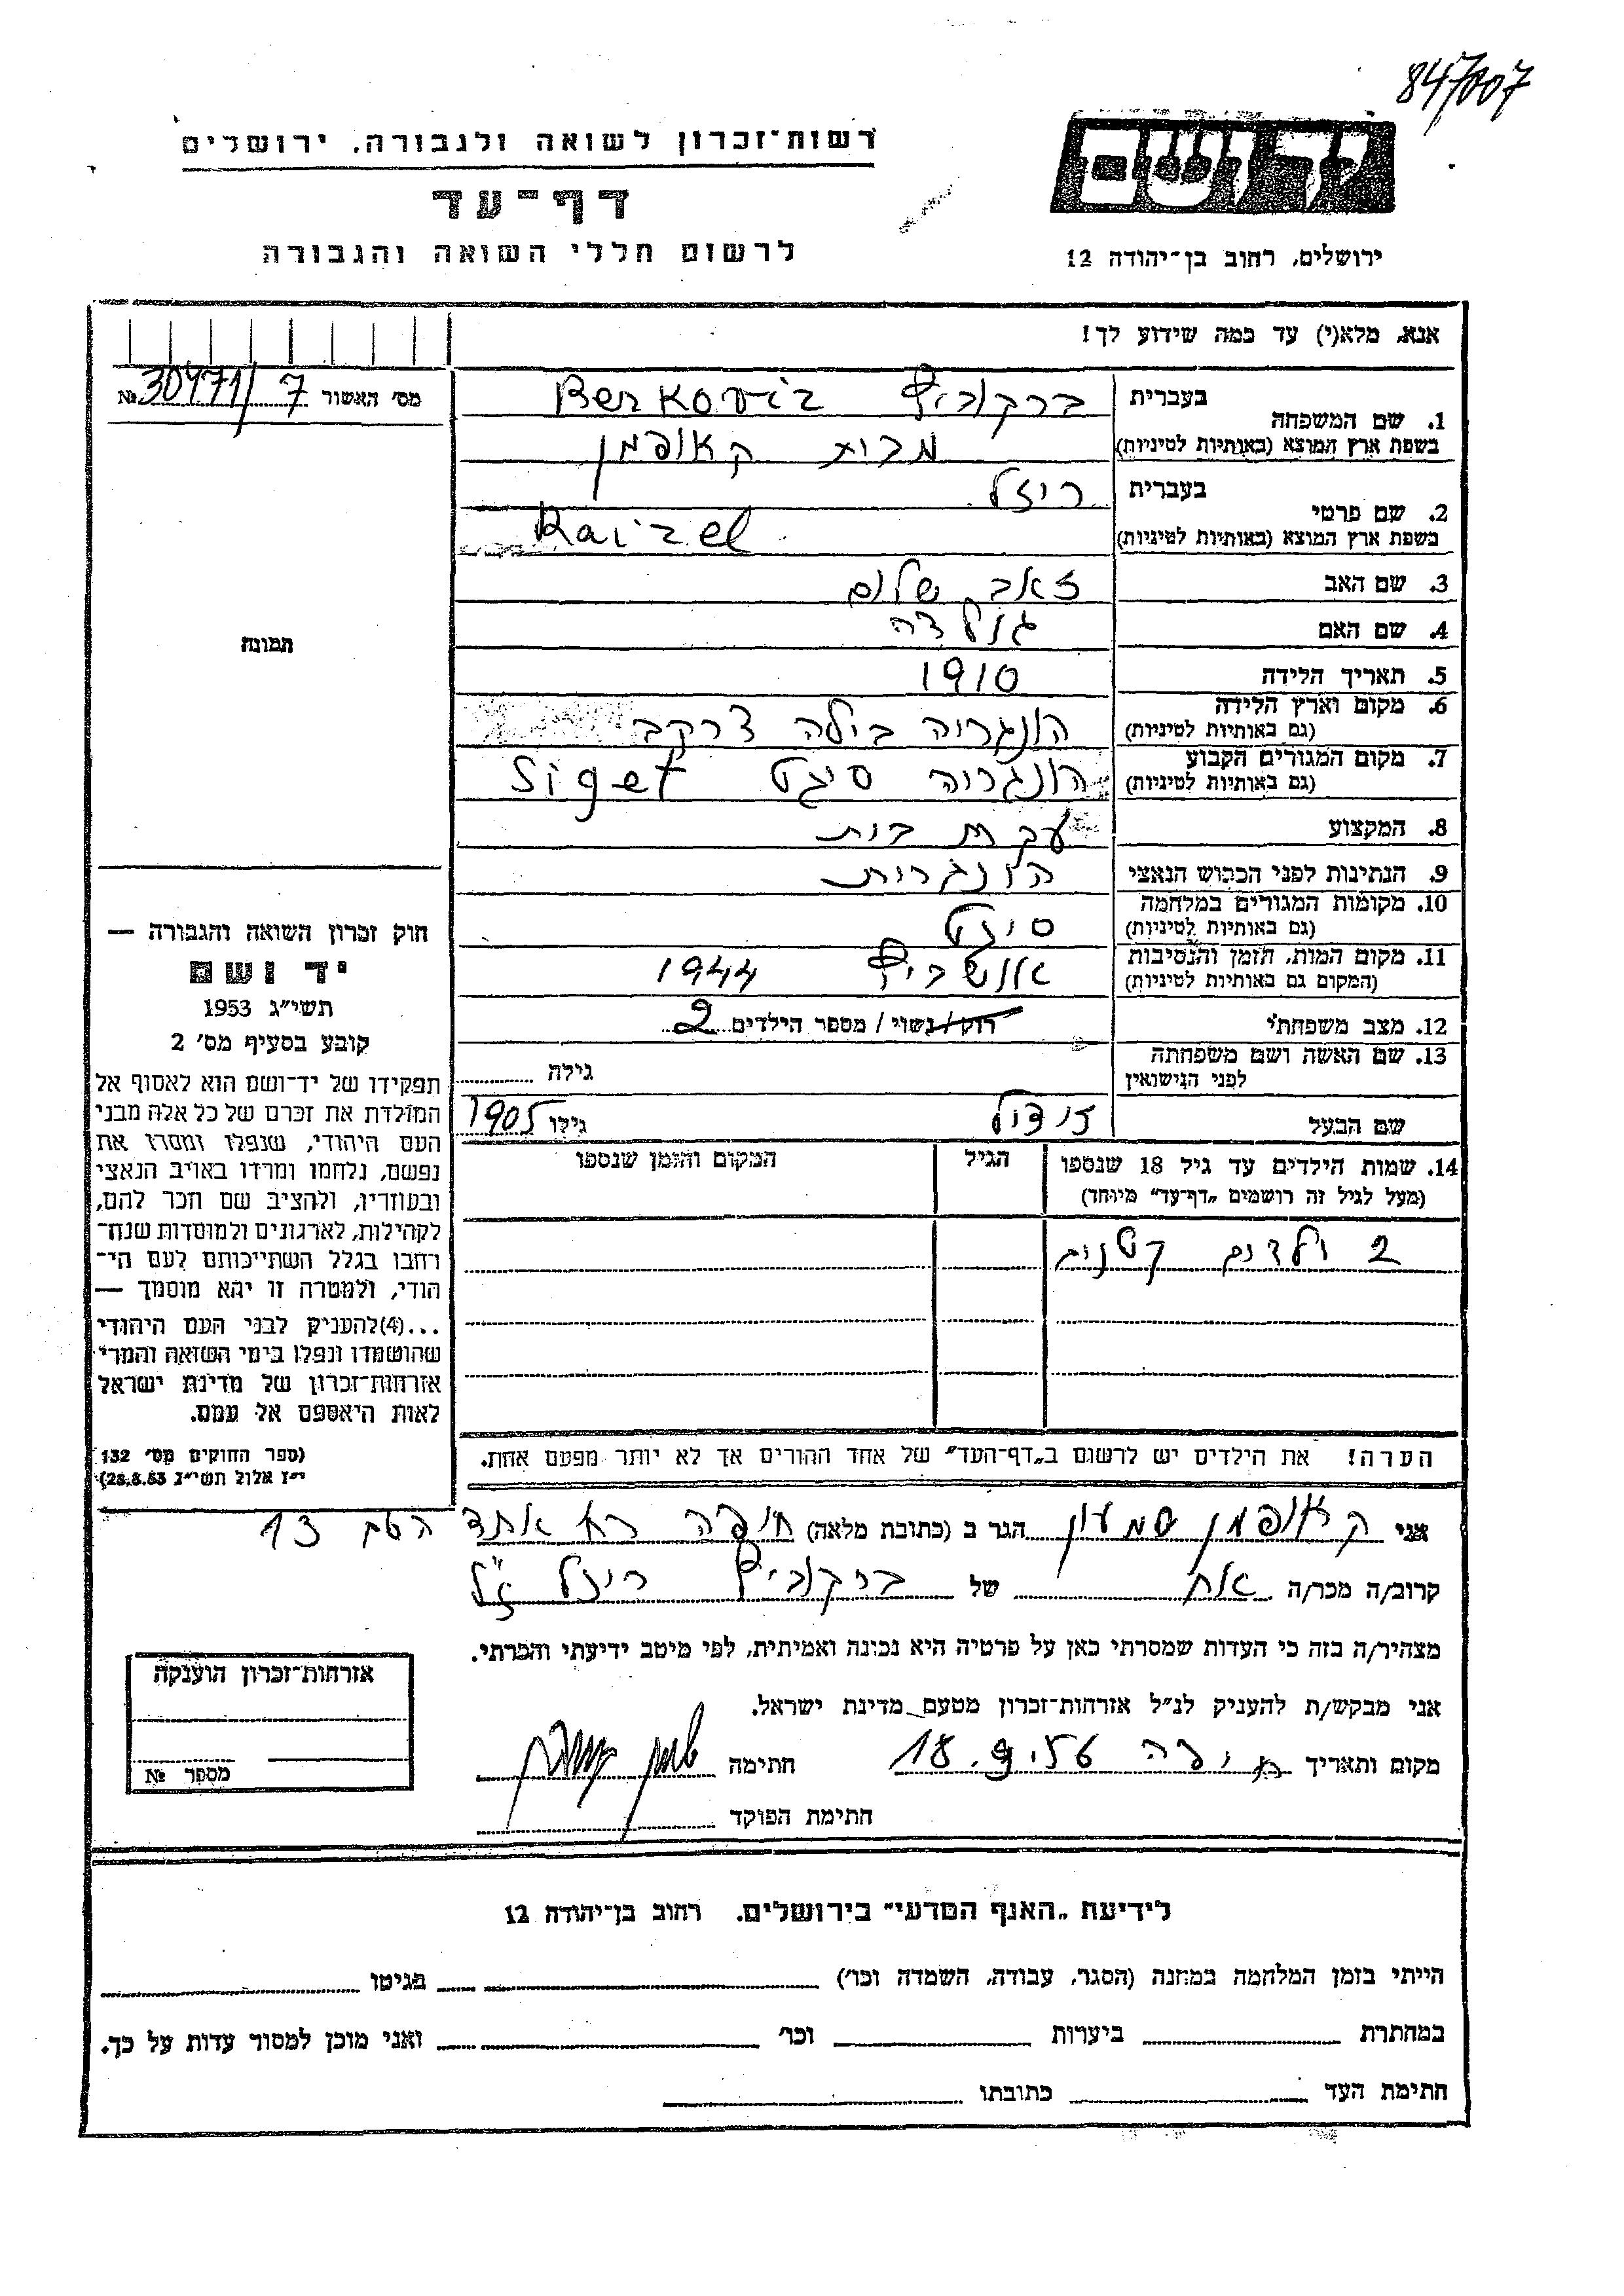 847007
רשות־זכרון לשואה ולגבורה, ירושלים
דף־עד
לרשום חללי השואה והגבורה
יד ושם
ירושלים, רחוב בן־יהודה 12
אנא, מלא(י) עד כמה שידוע לך!
מס׳ האשור № 30471/7
1. שם המשפחה
בעברית ברקוביץ Berkoviz
בשפת ארץ המוצא (באותיות לטיניות) מבית קאופמן
2. שם פרטי
בעברית ריזל
בשפת ארץ המוצא (באותיות לטיניות) Raizel
3. שם האב זאב שלום
4. שם האם גולדה
5. תאריך הלידה 1910
6. מקום וארץ הלידה
(גם באותיות לטיניות) הונגריה בילה צרקב
7. מקום המגורים הקבוע
(גם באותיות לטיניות) הונגריה סיגט Siget
8. המקצוע עקרת בית
9. הנתינות לפני הכבוש הנאצי הונגרית
10. מקומות המגורים במלחמה
(גם באותיות לטיניות) סיגט
11. מקום המות, הזמן והנסיבות
(המקום גם באותיות לטיניות) אושביץ 1944
12. מצב משפחתי רוק/נשוי/ מספר הילדים 2
13. שם האשה ושם משפחתה
לפני הנישואין גילה
שם הבעל זיידל גילו 1905
14. שמות הילדים עד גיל 18 שנספו הגיל המקום והזמן שנספו
(מעל לגיל זה רושמים „דף־עד" מיוחד)
2 ילדים קטנים
הערה! את הילדים יש לרשום ב„דף־העד" של אחד ההורים אך לא יותר מפעם אחת.
תמונה
חוק זכרון השואה והגבורה —
יד ושם
תשי״ג 1953
קובע בסעיף מס׳ 2
תפקידו של יד־ושם הוא לאסוף אל
המולדת את זכרם של כל אלה מבני
העם היהודי, שנפלו ומסרו את
נפשם, נלחמו ומרדו באויב הנאצי
ובעוזריו, ולהציב שם וזכר להם,
לקהילות, לארגונים ולמוסדות שנח־
רחבו בגלל השתייכותם לעם הי־
הודי, ולמטרה זו יהא מוסמך —
...(4)להעניק לבני העם היהודי
שהושמדו ונפלו בימי השואה והמרי
אזרחות־זכרון של מדינת ישראל
לאות היאספם אל עמם.
(ספר החוקים מס׳ 132
י״ז אלול תשי״ג 28.8.53)
אני קאופמן שמעון הגר ב (כתובת מלאה) חיפה 13
קרוב/ה מכר/ה אח של ברקוביץ ריזל ז״ל
מצהיר/ה בזה כי העדות שמסרתי כאן על פרטיה היא נכונה ואמיתית, לפי מיטב ידיעתי והכרתי.
אני מבקש/ת להעניק לנ״ל אזרחות־זכרון מטעם מדינת ישראל.
מקום ותאריך חיפה 18.9.56 חתימה
חתימת הפוקד
אזרחות־זכרון הוענקה
מספר №
לידיעת „האגף המדעי" בירושלים. רחוב בן־יהודה 12
הייתי בזמן המלחמה במחנה (הסגר, עבודה, השמדה וכו׳) בגיטו
במחתרת ביערות וכו׳ ואני מוכן למסור עדות על כך.
חתימת העד כתובתו